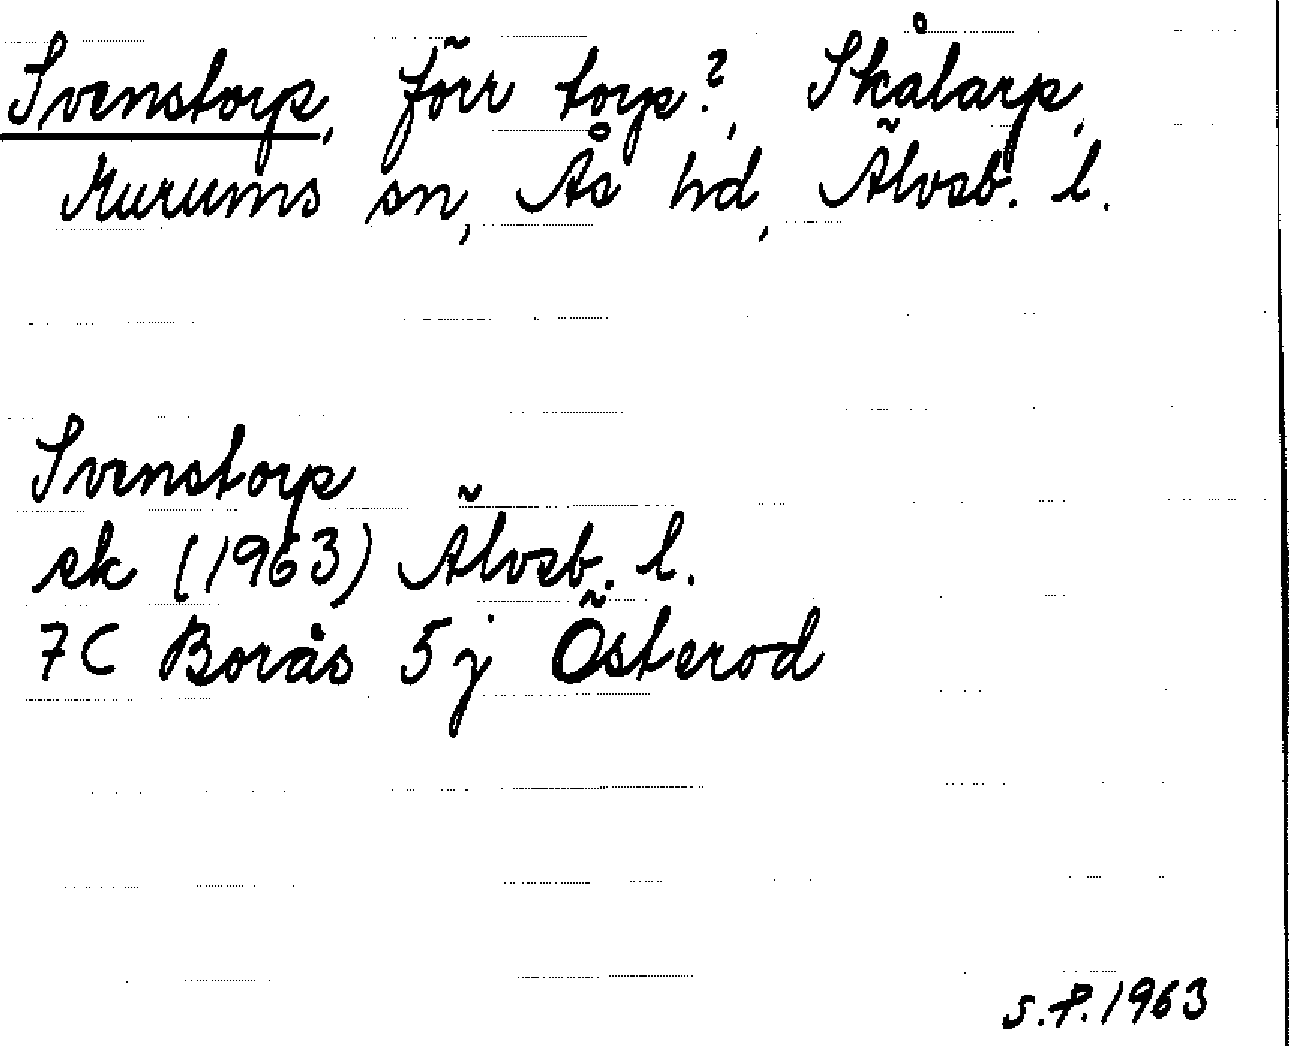 Svenstorp, förr torp?, Skålarp,
Murums sn, Ås hd, Älvsb. l.
Svenstorp
ek (1963) Älvsb. l.
7C Borås 5j Österod
S.F. 1963